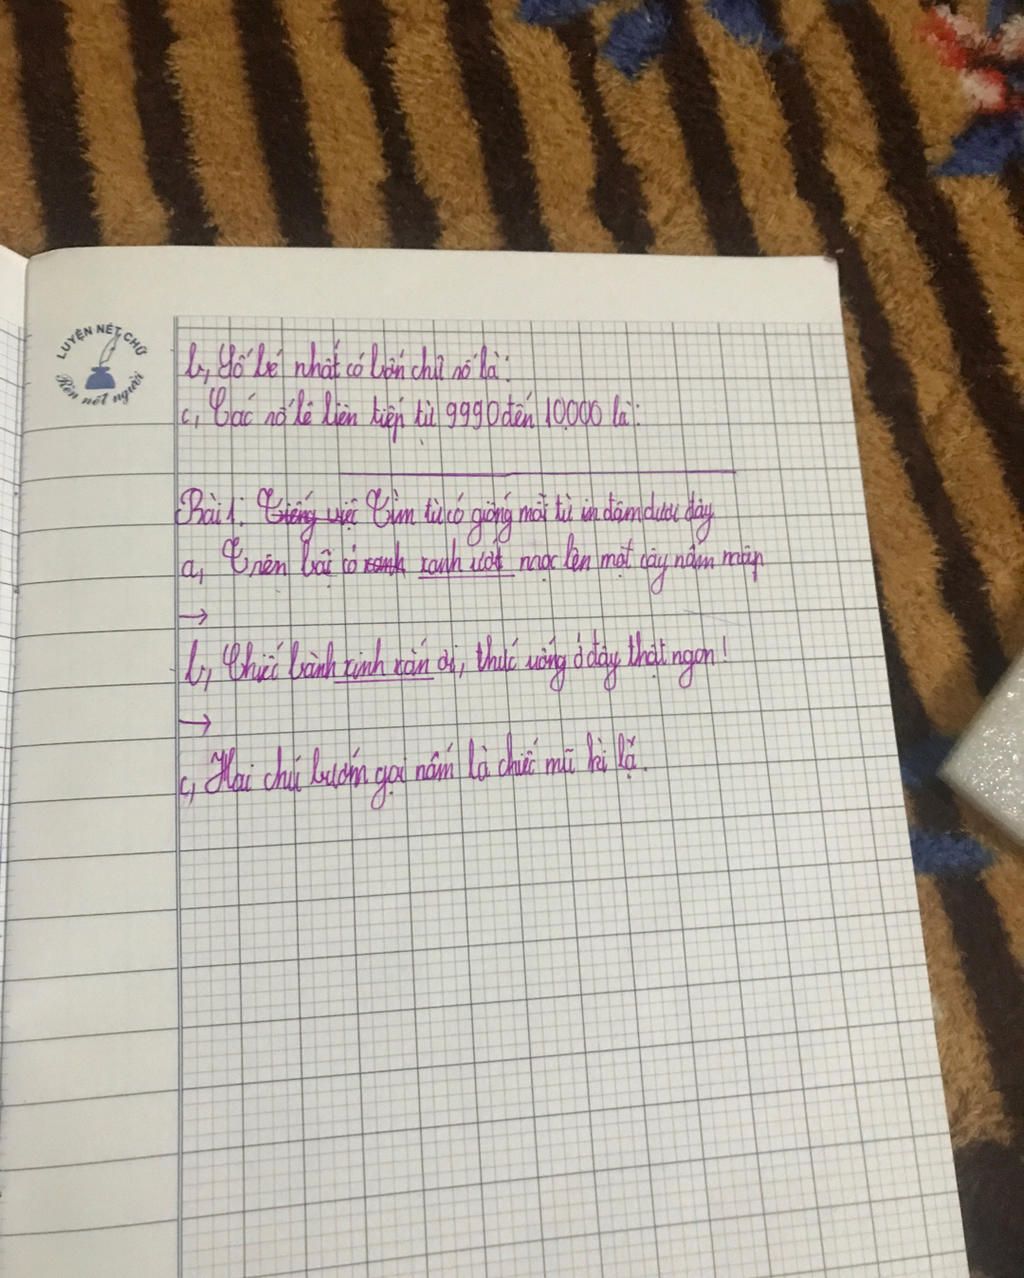 LUYỆN NÉT CHỮ
Rèn nết người
b, Số bé nhất có bốn chữ số là:
c, Các số lẻ liên tiếp từ 9990 đến 10000 là:
Bài 1: Tiếng việt Tìm từ có giống mỗi từ in đậm dưới đây
a, Trên bãi cỏ xanh xanh ướt mọc lên một cây nấm mập
→
b, Chiếc bánh xinh xắn ơi, thức uống ở đây thật ngon!
→
c, Hai chú bướm gọi nấm là chiếc mũ kì lạ.